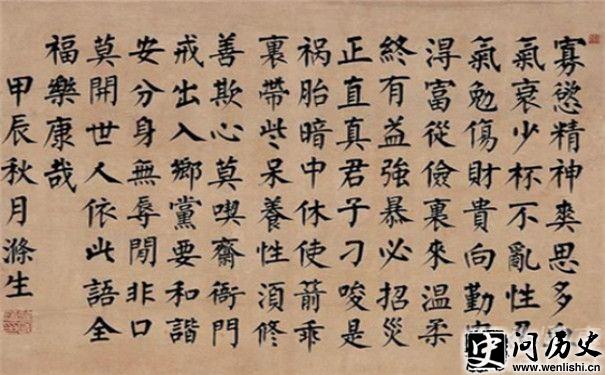 寡慾精神爽思多血
氣衰少杯不亂性忍
氣勉傷財貴向勤中
淂富從儉裏來温柔
終有益強暴必招災
正直真君子刁唆是
祸胎暗中休使箭乖
裏帶些呆養性湏修
善欺心莫喫齋衙門
戒出入鄉黨要和諧
安分身無辱閒非口
莫開世人依此語全
福樂康哉
甲辰秋月滌生
史问历史
www.wenlishi.cn